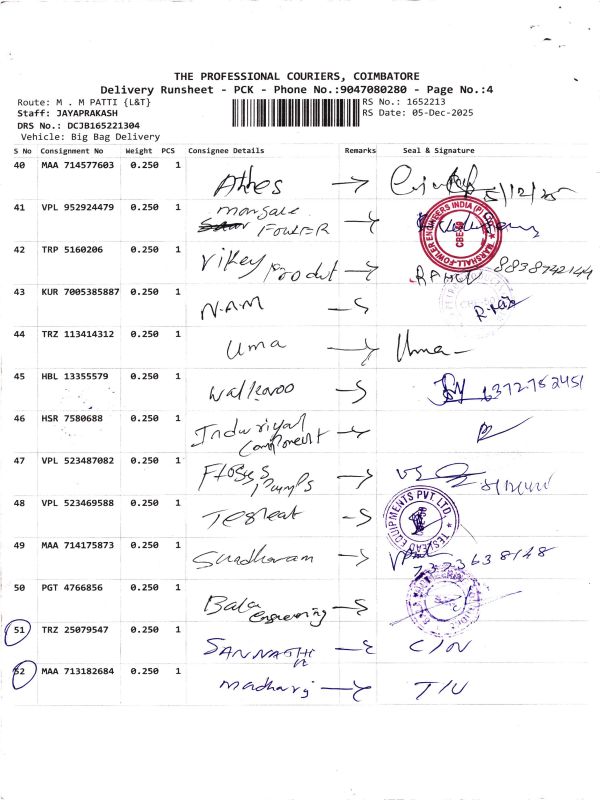 THE PROFESSIONAL COURIERS, COIMBATORE
Delivery Runsheet - PCK - Phone No.:9047080280 - Page No.:4
Route: M . M PATTI {L&T}
RS No.: 1652213
Staff: JAYAPRAKASH
RS Date: 05-Dec-2025
DRS No.: DCJB165221304
Vehicle: Big Bag Delivery
S No Consignment No Weight PCS Consignee Details Remarks Seal & Signature
40 MAA 714577603 0.250 1
5/12/25
41 VPL 952924479 0.250 1
FOWLER
MARSHALL-FOWLER ENGINEERS INDIA (P) LTD.
CBE-50
42 TRP 5160206 0.250 1 Vikey Produt
8838742144
43 KUR 7005385887 0.250 1 N.A.M
44 TRZ 113414312 0.250 1 Uma Uma
45 HBL 13355579 0.250 1
6372752451
46 HSR 7580688 0.250 1
Component
47 VPL 523487082 0.250 1
Pumps
48 VPL 523469588 0.250 1
TESLEAD EQUIPMENTS PVT LTD.
49 MAA 714175873 0.250 1 Sundharam
7373638148
50 PGT 4766856 0.250 1 Bala
Engineering
51 TRZ 25079547 0.250 1 C/N
52 MAA 713182684 0.250 1 Madharj T/U